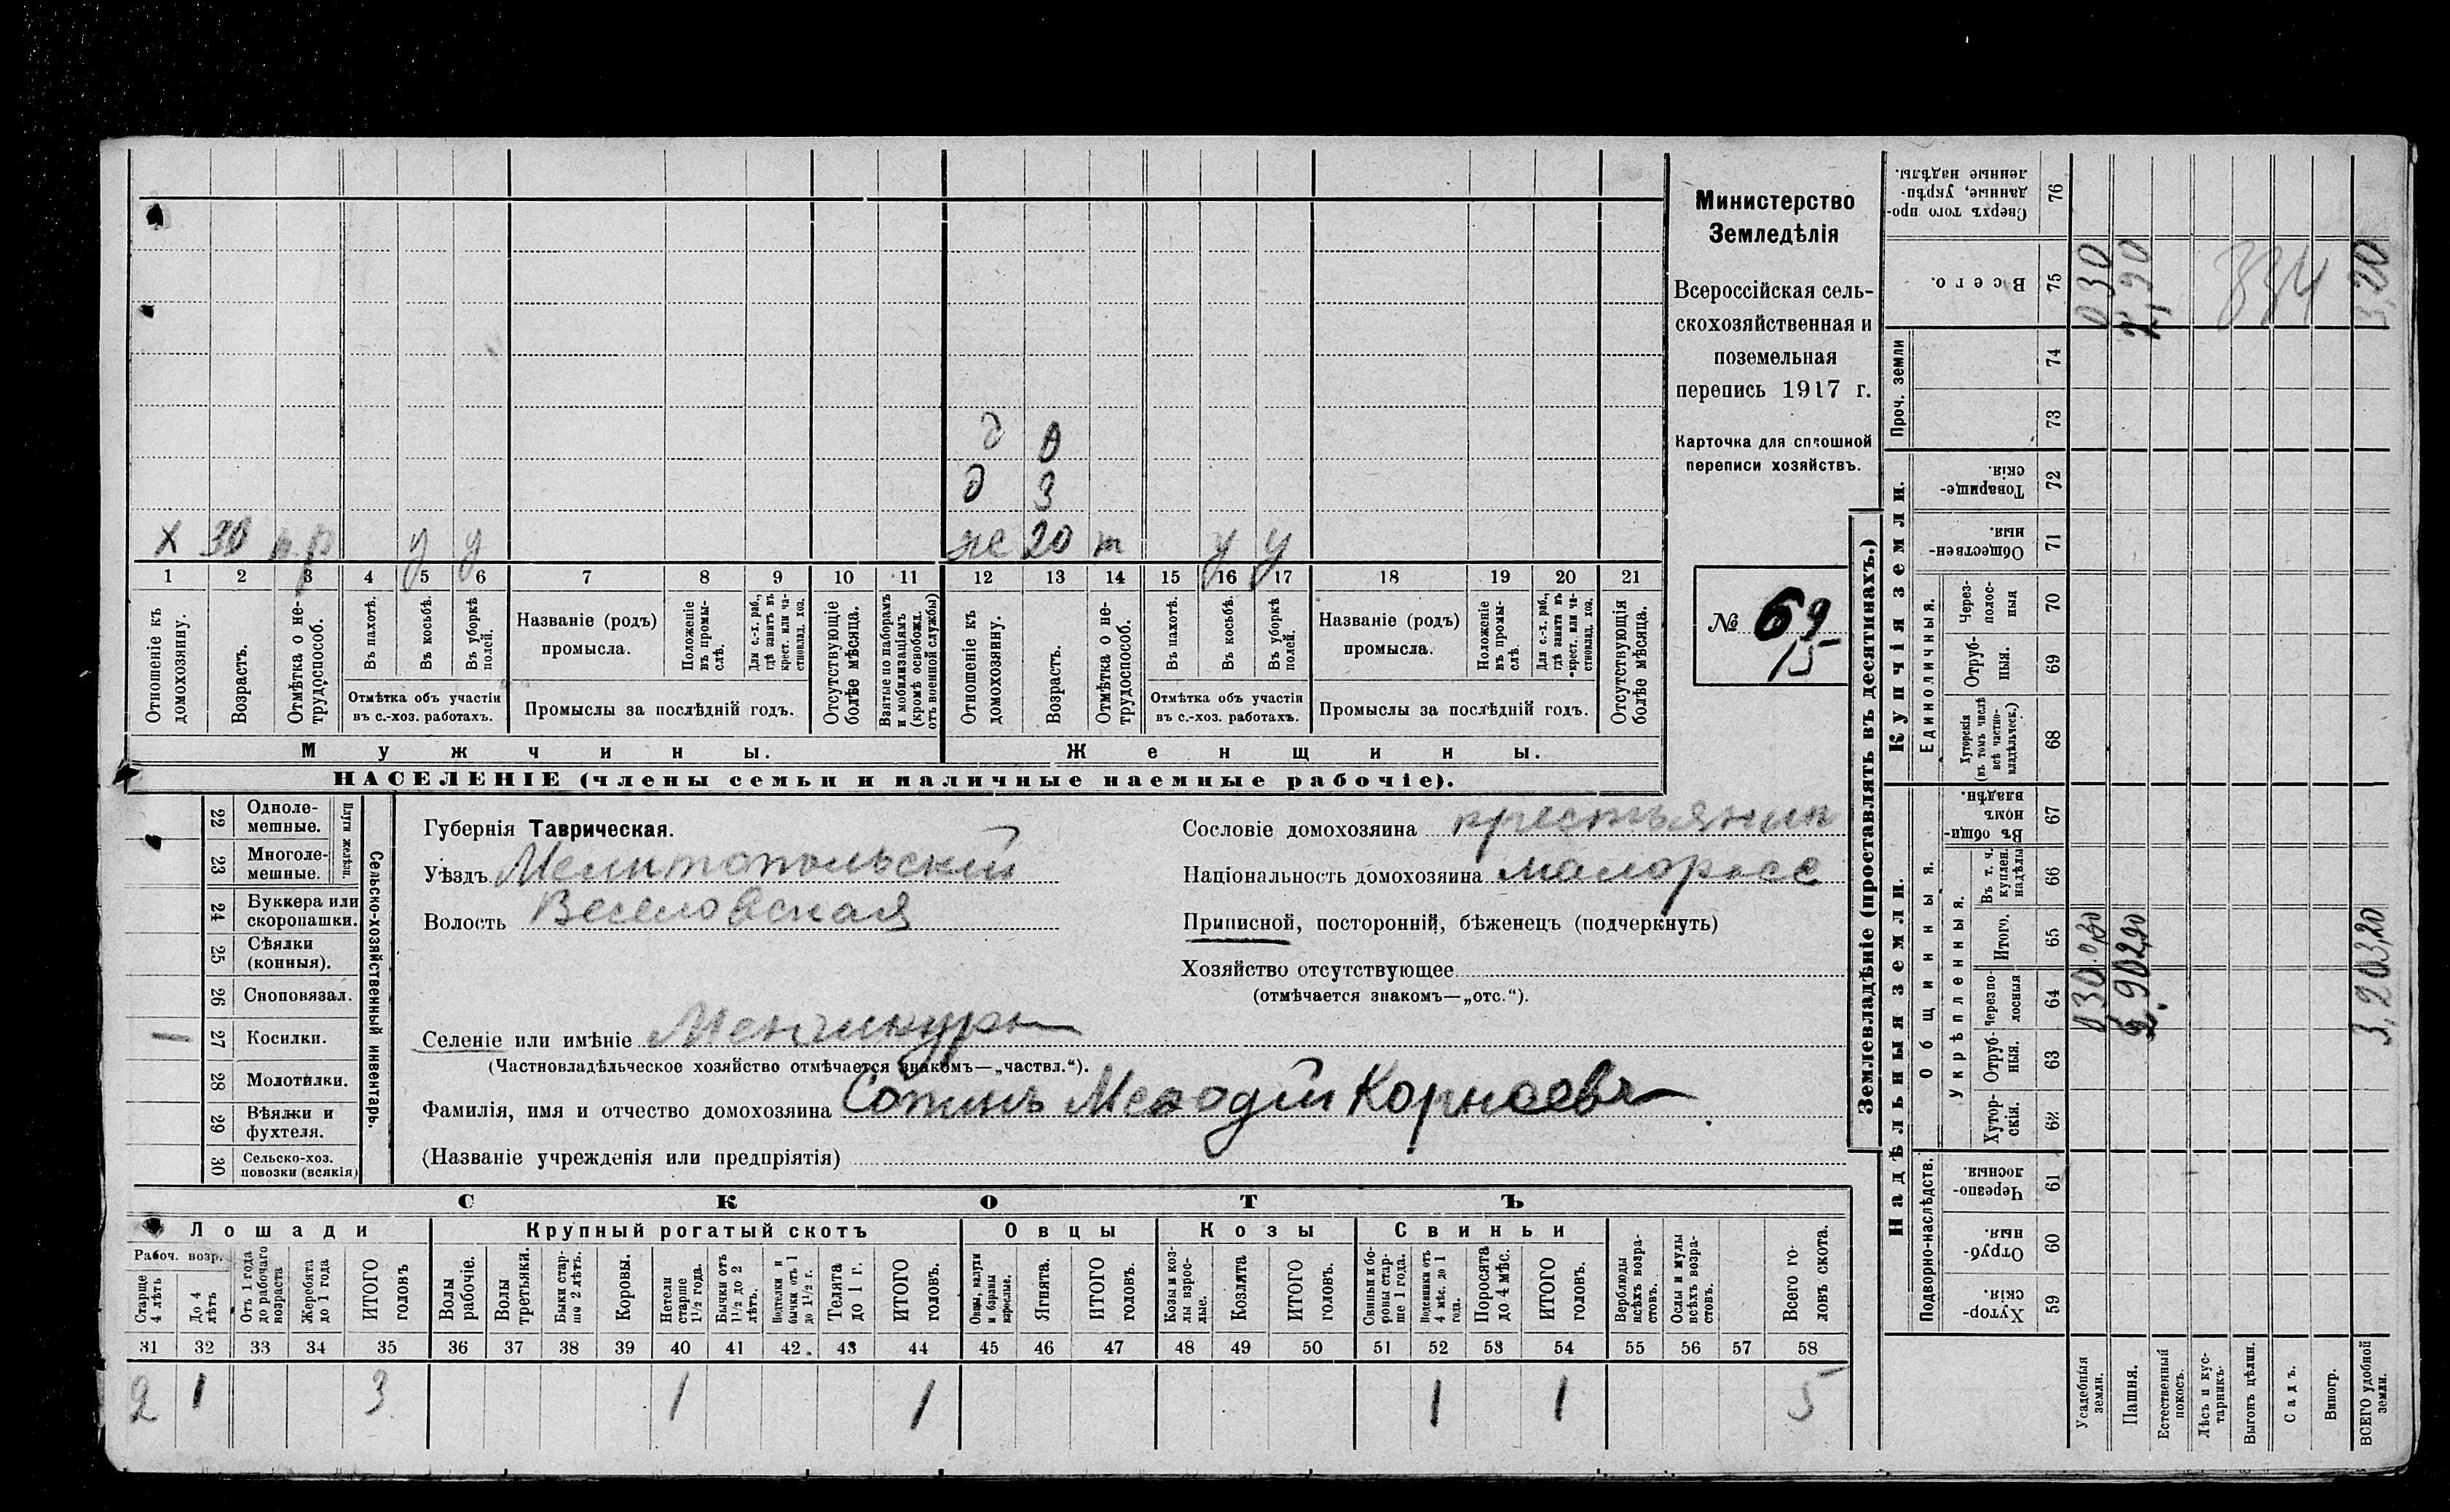 Министерство
Земледѣлія
Всероссійская сель-
скохозяйственная и
поземельная
перепись 1917 г.
Карточка для сплошной
переписи хозяйствъ.
№ 69
15
д 0
д 3
х 30 п.р у у
ж 20 т у у
1 2 3 4 5 6 7 8 9 10 11 12 13 14 15 16 17 18 19 20 21
Отношеніе къ домохозяину.
Возрастъ.
Отмѣтка о не-трудоспособ.
Въ пахотѣ.
Въ косьбѣ.
Въ уборкѣ полей.
Отмѣтка объ участіи въ с.-хоз. работахъ.
Названіе (родъ) промысла.
Положеніе въ промы-слѣ.
Для с.-х. раб., гдѣ занятъ въ крест. или ча-стновлад. хоз.
Промыслы за послѣдній годъ.
Отсутствующіе болѣе мѣсяца.
Взятые по наборамъ и мобилизаціямъ (кромѣ освобожд. отъ военной службы)
Отношеніе къ домохозяину.
Возрастъ.
Отмѣтка о не-трудоспособ.
Въ пахотѣ.
Въ косьбѣ.
Въ уборкѣ полей.
Отмѣтка объ участіи въ с.-хоз. работахъ.
Названіе (родъ) промысла.
Положеніе въ промы-слѣ.
Для с.-х. раб., гдѣ занята въ крест. или ча-стновлад. хоз.
Промыслы за послѣдній годъ.
Отсутствующія болѣе мѣсяца.
Мужчины.
Женщины.
НАСЕЛЕНІЕ (члены семьи и наличные наемные рабочіе).
22 Одноле-мешные.
23 Многоле-мешные.
Плуги желѣзн.
24 Буккера или скоропашки.
25 Сѣялки (конныя).
26 Сноповязал.
27 Косилки. 1
28 Молотилки.
29 Вѣялки и фухтеля.
30 Сельско-хоз. повозки (всякія)
Сельско-хозяйственный инвентарь.
Губернія Таврическая.
Уѣздъ Мелитопольский
Волость Веселовская
Селеніе или имѣніе Менчикуры
(Частновладѣльческое хозяйство отмѣчается знакомъ—„частвл.“).
Фамилія, имя и отчество домохозяина Сотикъ Меθодій Корнеевъ
(Названіе учрежденія или предпріятія)
Сословіе домохозяина крестьянин
Національность домохозяина малоросс
Приписной, посторонній, бѣженецъ (подчеркнуть)
Хозяйство отсутствующее
(отмѣчается знакомъ—„отс.“).
СКОТЪ
Лошади
Рабоч. возр.
Старше 4 лѣтъ
До 4 лѣтъ
Отъ 1 года до рабочаго возраста
Жеребята до 1 года
ИТОГО головъ
Крупный рогатый скотъ
Волы рабочіе.
Волы третьяки.
Быки стар-ше 2 лѣтъ.
Коровы.
Нетели старше 1½ года.
Бычки отъ 1½ до 2 лѣтъ.
Подтелки и бычки отъ 1 до 1½ г.
Телята до 1 г.
ИТОГО головъ.
Овцы
Овцы, валухи и бараны взрослые.
Ягнята.
ИТОГО головъ.
Козы
Козы и коз-лы взрос-лые.
Козлята
ИТОГО головъ.
Свиньи
Свиньи и бо-ровы стар-ше 1 года.
Подсвинки отъ 4 мѣс. до 1 года.
Поросята до 4 мѣс.
ИТОГО головъ.
Верблюды всѣхъ возра-стовъ.
Ослы и мулы всѣхъ возра-стовъ.
Всего го-ловъ скота.
31 32 33 34 35 36 37 38 39 40 41 42 43 44 45 46 47 48 49 50 51 52 53 54 55 56 57 58
2 1 3 1 1 1 1 5
Землевладѣніе (проставлять въ десятинахъ.)
Надѣльныя земли.
Подворно-наслѣдств.
Хутор-скія. 59
Отруб-ныя. 60
Черезпо-лосныя. 61
Общинныя.
Укрѣпленныя.
Хутор-скія. 62
Отруб-ныя. 63
Черезпо-лосныя 64
Итого. 65
Въ т. ч. куплен. надѣлы 66
Въ общин-номъ владѣн. 67
Купчія земли.
Единоличныя.
Хуторскія (въ томъ числѣ всѣ частно-владѣльческ.) 68
Отруб-ныя. 69
Через-полос-ныя 70
Обществен-ныя. 71
Товарище-скія. 72
Проч. земли
73
74
Всего. 75
Сверхъ того про-данные, укрѣп-ленные надѣлы. 76
Усадебныя земли. 0,30 0,30 0,30
Пашня. 2,90 2,90 2,90
Естественный покосъ.
Лѣсъ и кус-тарникъ.
Выгонъ цѣлин.
Садъ.
Виногр.
ВСЕГО удобной земли. 3,20 3,20 3,20
334